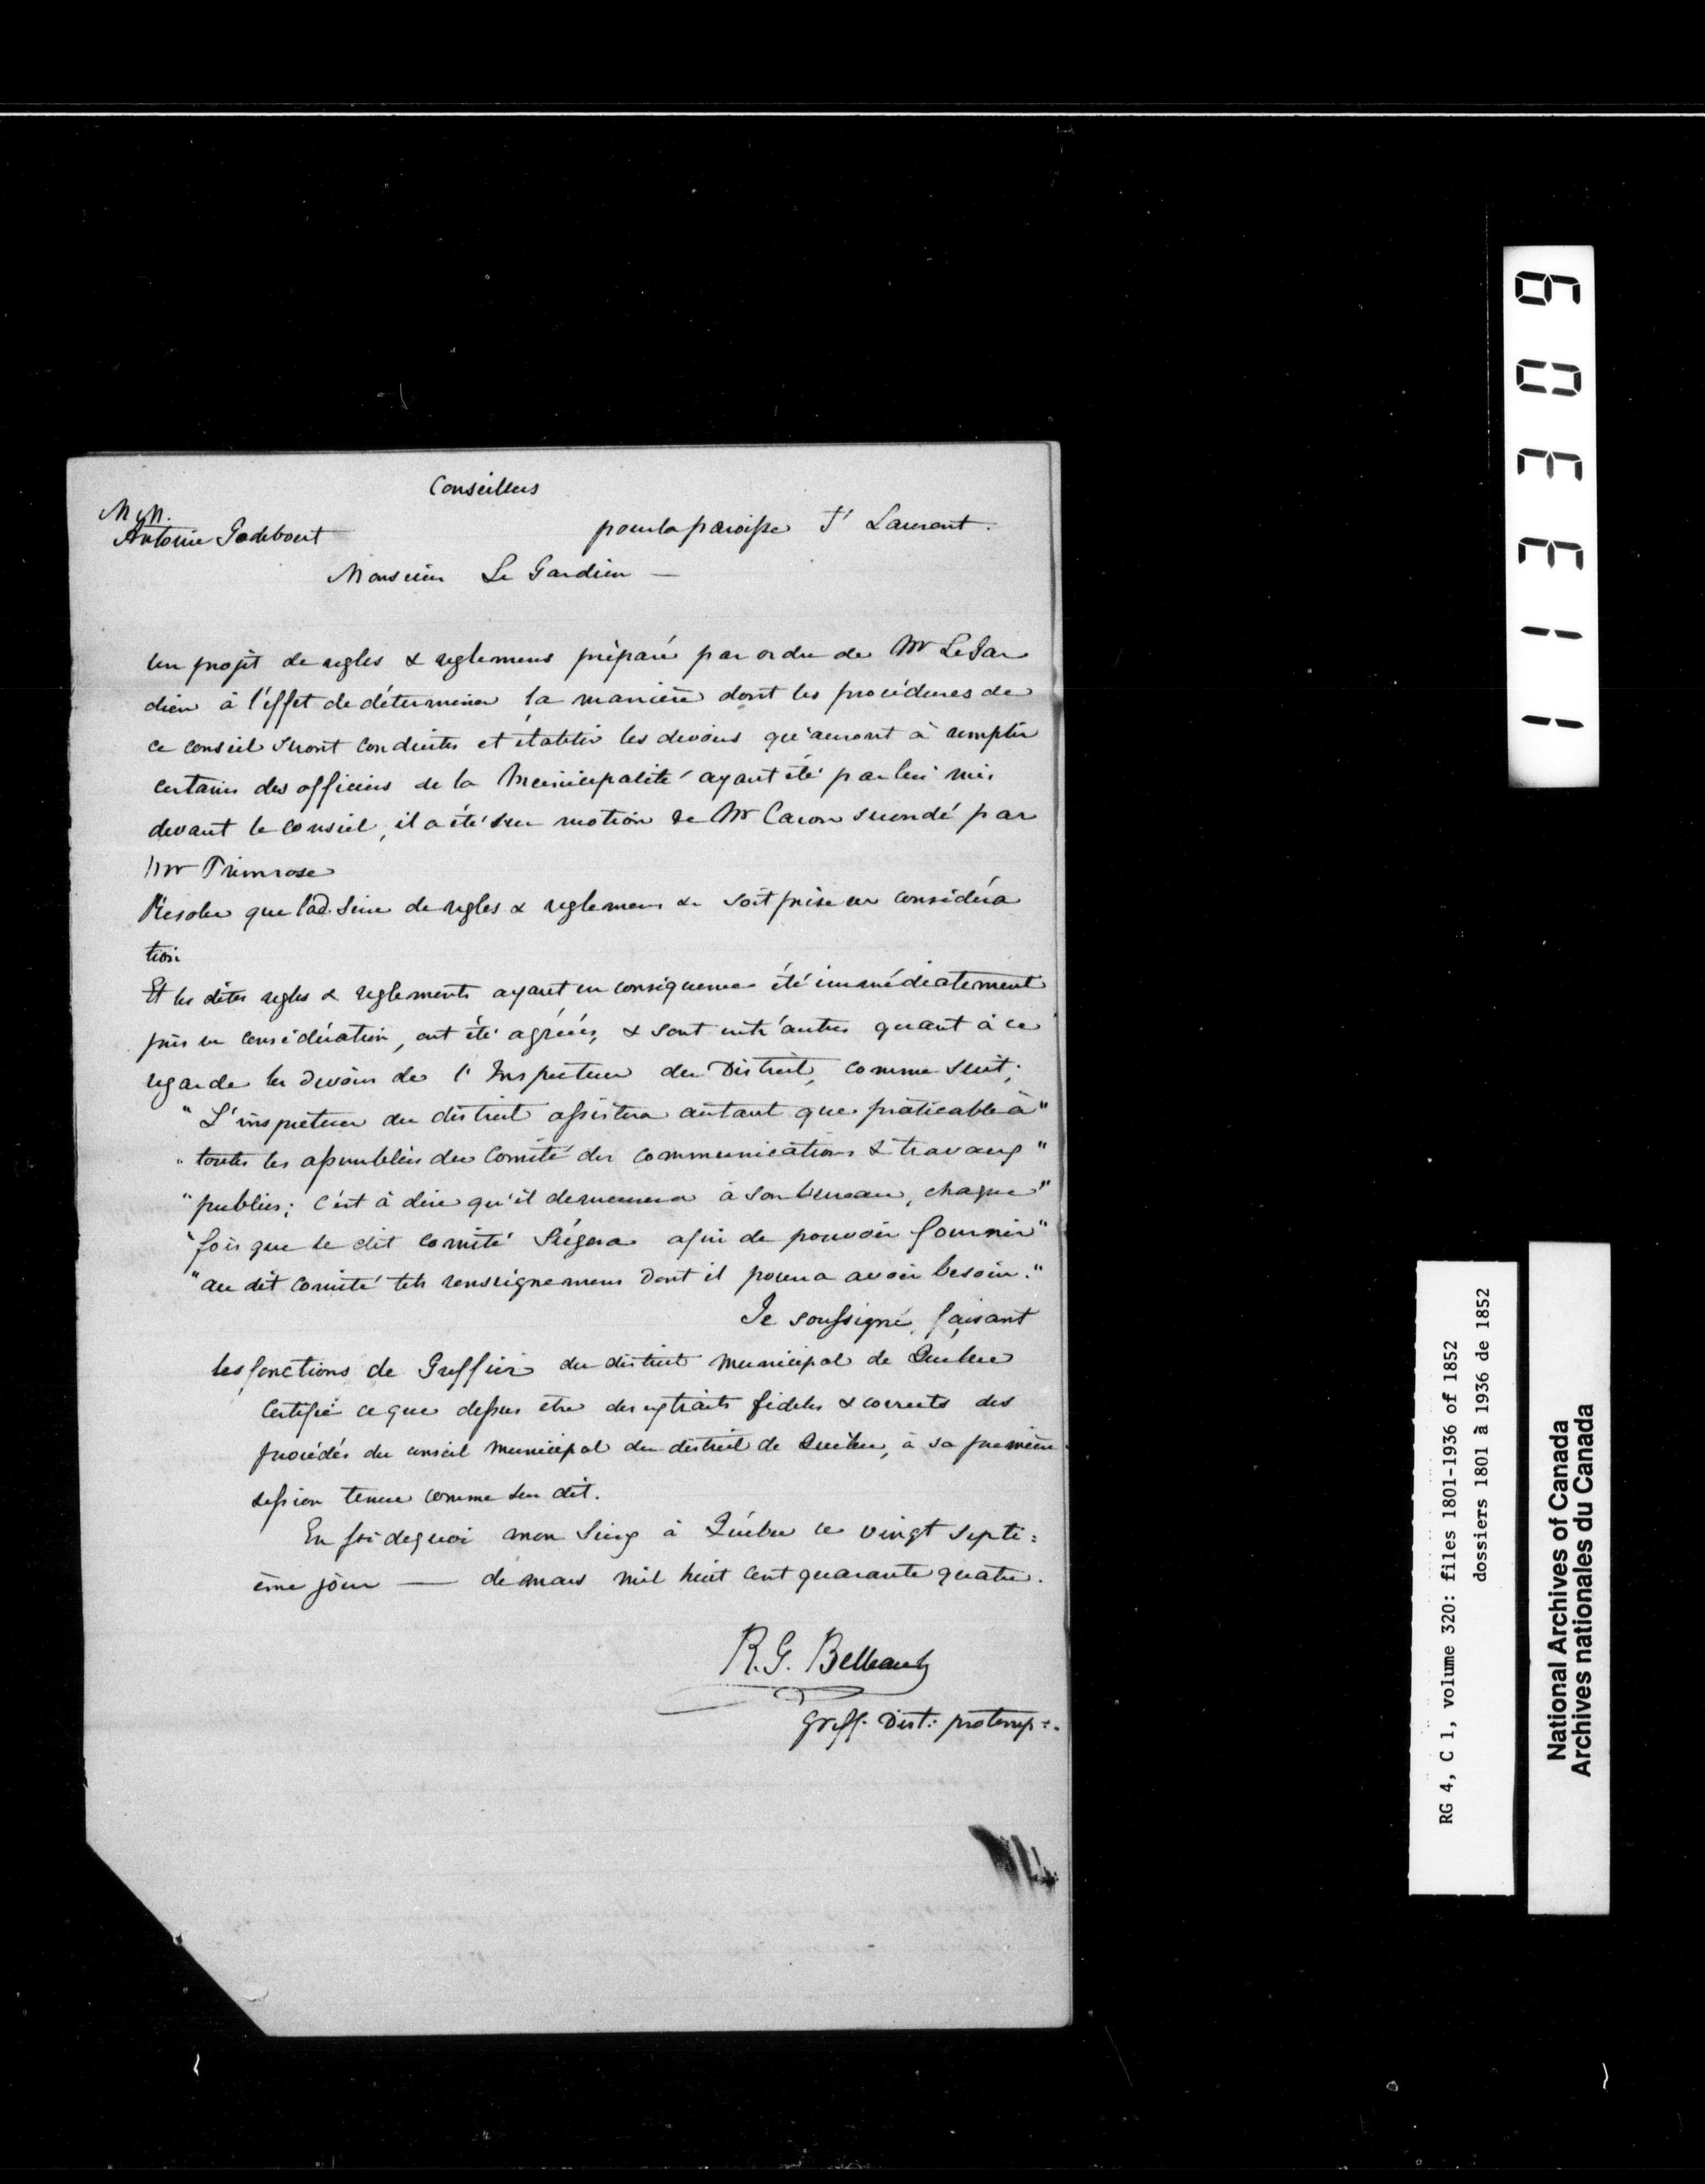 Conseillers
MM.
Antoine Godebout pour la paroisse St Laurent.
Monsieur Le Gardien —
Un projet de regles & reglemens préparé par ordre de Mr LeGar
dien à l'effet de déterminer la manière dont les procédures de
ce conseil seront conduites et établir les devoirs qu'auront à remplir
certains des officiers de la Municipalité ayant été par lui mis
devant le conseil, il a été sur motion de Mr Caron secondé par
Mr Primrose
Résolu que lad. Série de regles & reglemens &c soit prise en considéra
tion
Et les dites regles & reglements ayant en conséquence été immédiatement
pris en considération, ont été agréés, & sont entr'autres quant à ce
regarde les devoirs de l'Inspecteur du District, comme suit;
"L'inspecteur du district assistera autant que praticable à"
"toutes les assemblées du Comité des communications & travaux"
"publics; c'est à dire qu'il demeurera à son bureau, chaque"
"fois que le dit comité siégera afin de pouvoir fournir"
"au dit comité tels renseignemens dont il pourra avoir besoin."
Je soussigné, faisant
les fonctions de Greffier du district municipal de Québec
Certifie ce que dessus être des extraits fideles & corrects des
procédés du conseil municipal du district de Québec, à sa première
session tenue comme sus dit.
En foi de quoi mon Seing à Québec ce vingt septi=
ème jour — de mars mil huit cent quarante quatre.
R. G. Belleau
Greff. Dist: protemp:.
113309
RG 4, C 1, volume 320: files 1801-1936 of 1852
dossiers 1801 à 1936 de 1852
National Archives of Canada
Archives nationales du Canada